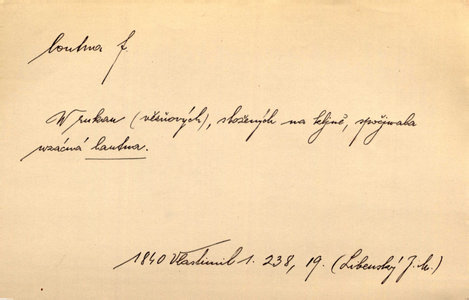 loutna f.
W rukau (věšňových), složených na kljně, spočjwala
wzácná loutna.
1840 Vlastimil 1. 238, 19. (Libenský J. M.)